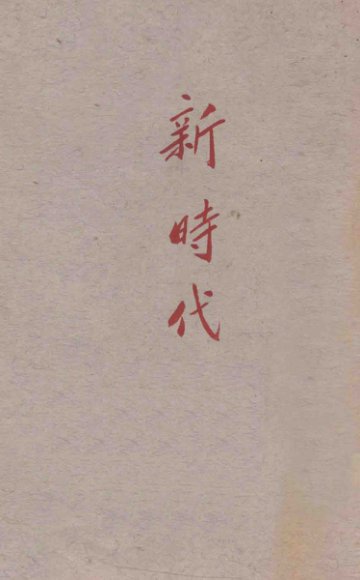 新時代